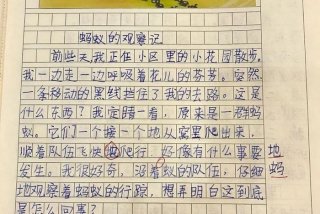 蚂蚁的观察记
前些天，我正在小区里的小花园散步，
我一边走一边呼吸着花儿的芬芳。突然，
一条移动的黑线挡住了我的去路。这是
什么东西？我定睛一看，原来是一群蚂
蚁。它们一个接一个地从窝里爬出来，
顺着队伍飞快爬行，好像有什么事要地
发生。我很好奇，沿着蚂蚁的队伍，仔细蚂
地观察着蚂蚁的行踪，想弄明白这到底
是怎么回事？